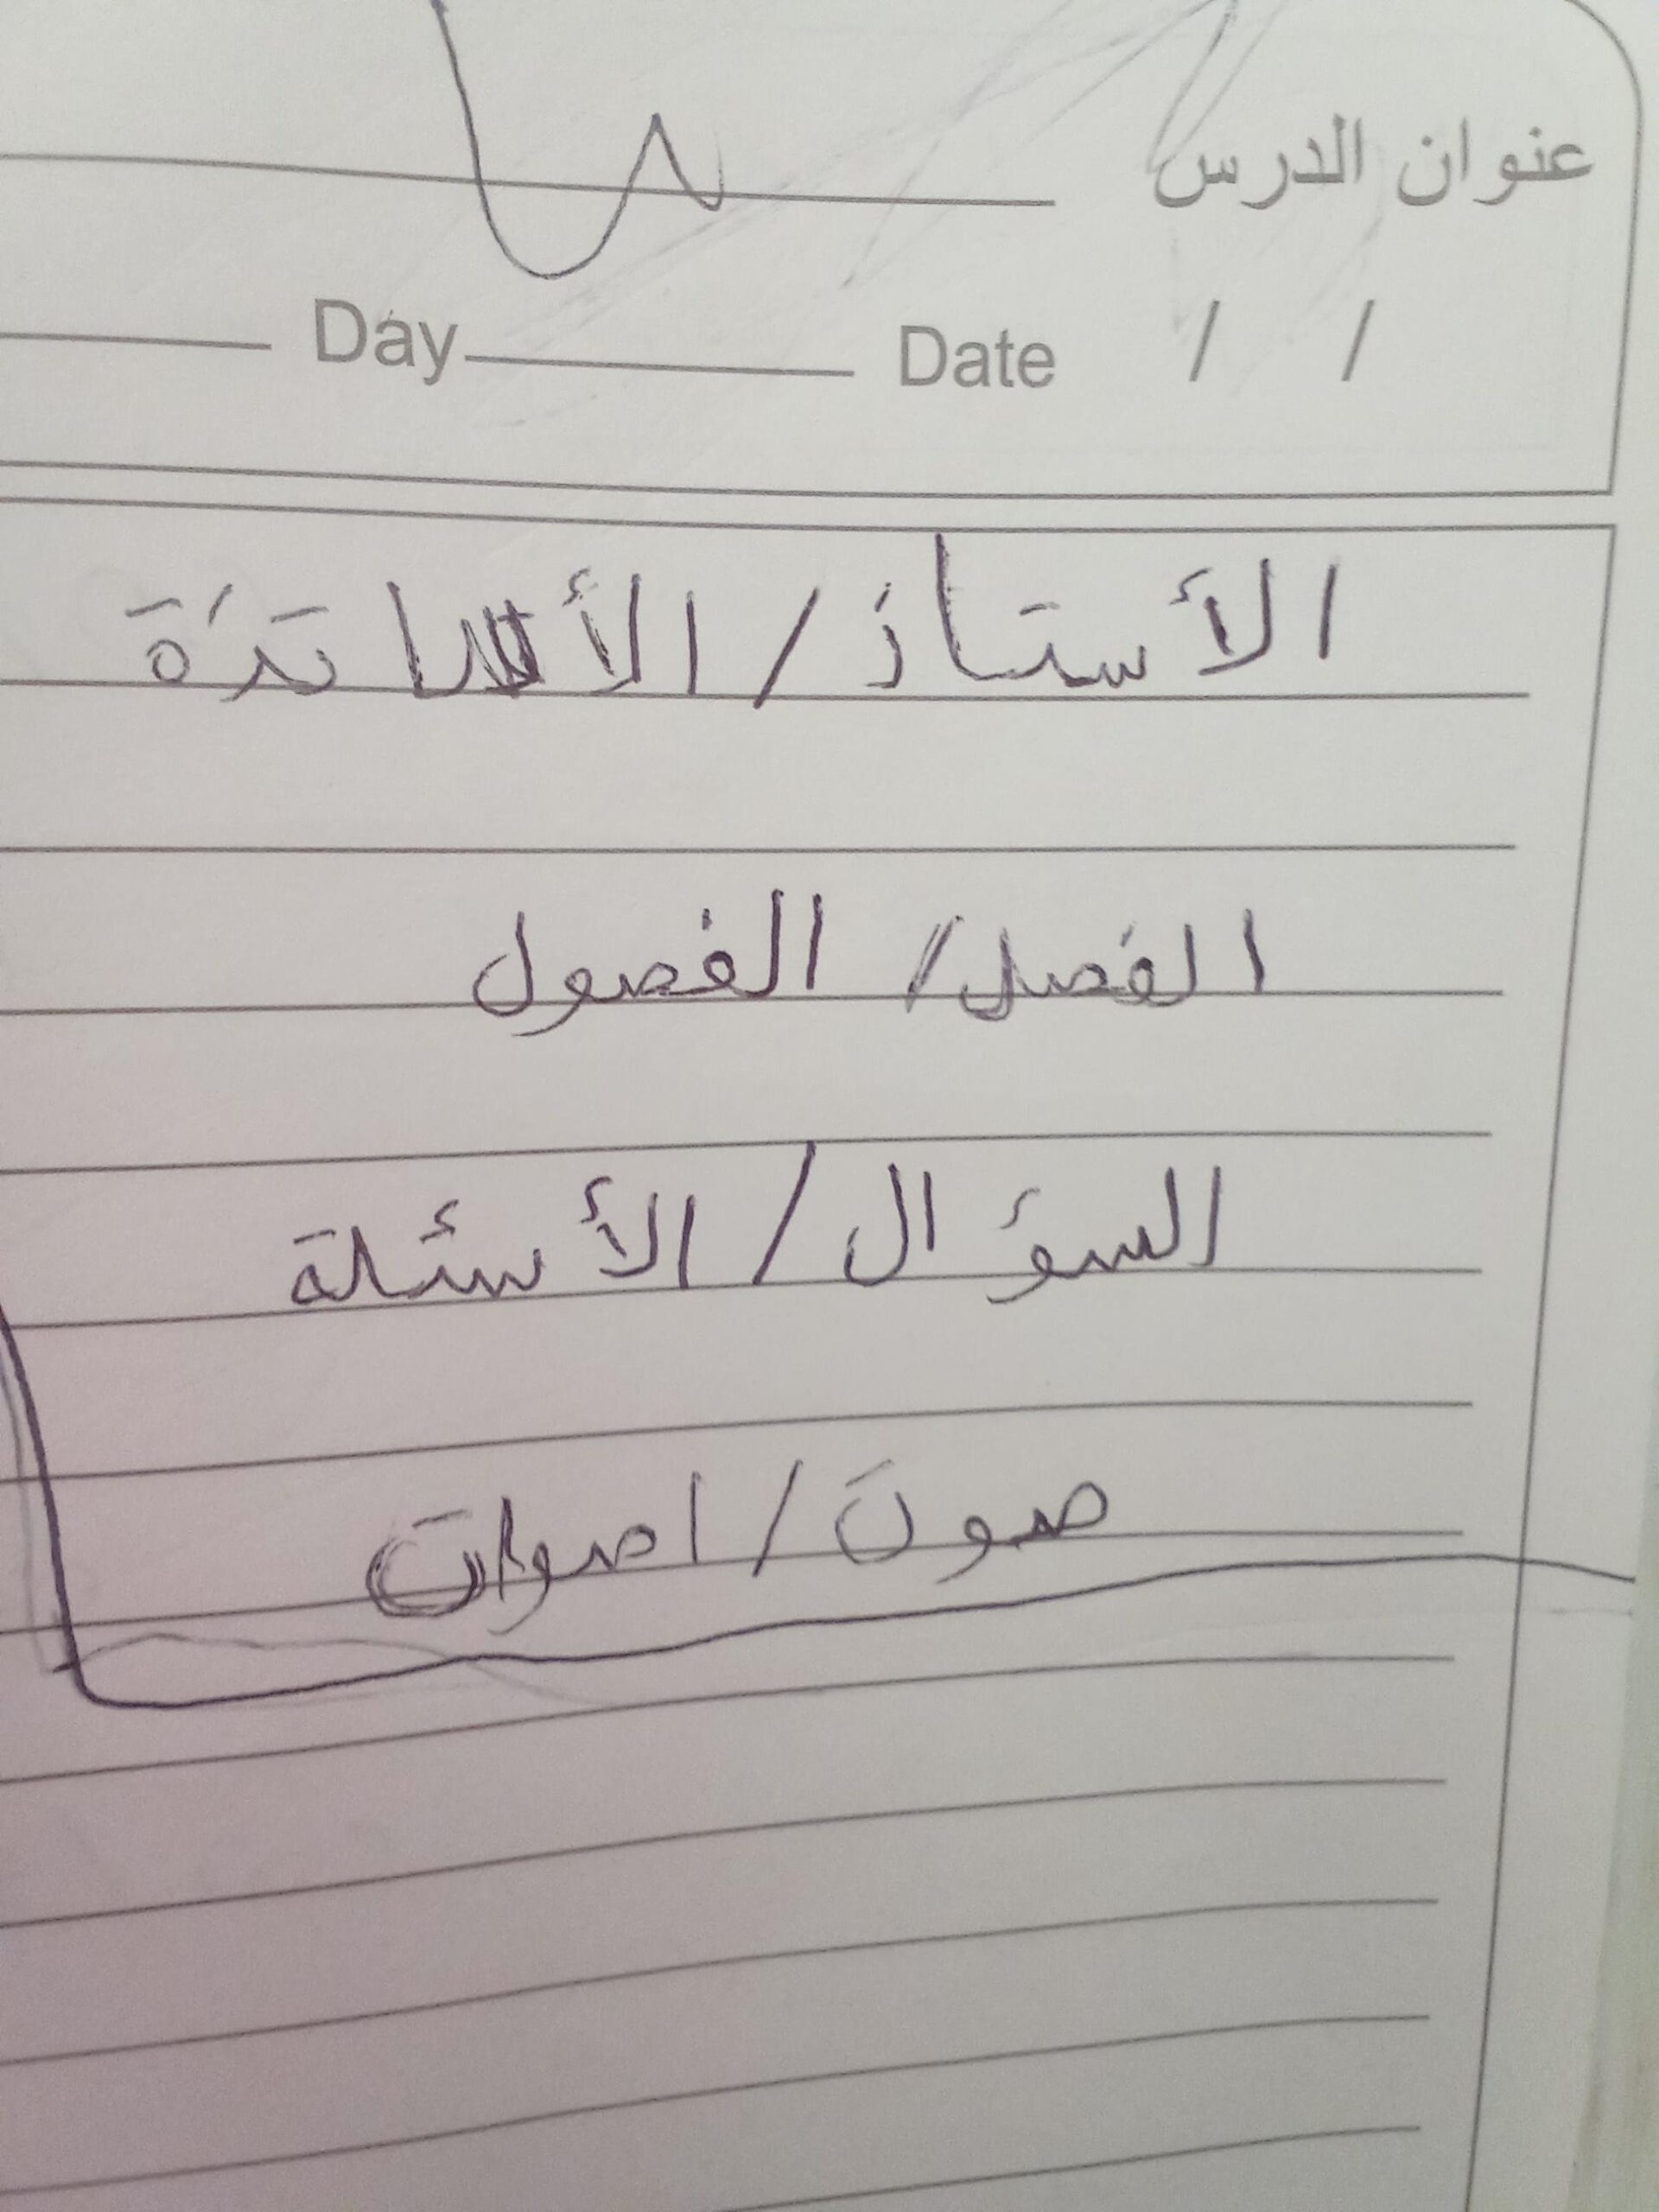 عنوان الدرس
Day Date / /
الأستاذ / الأساتذة
الفصل / الفصول
السؤال / الأسئلة
صوت / اصوات